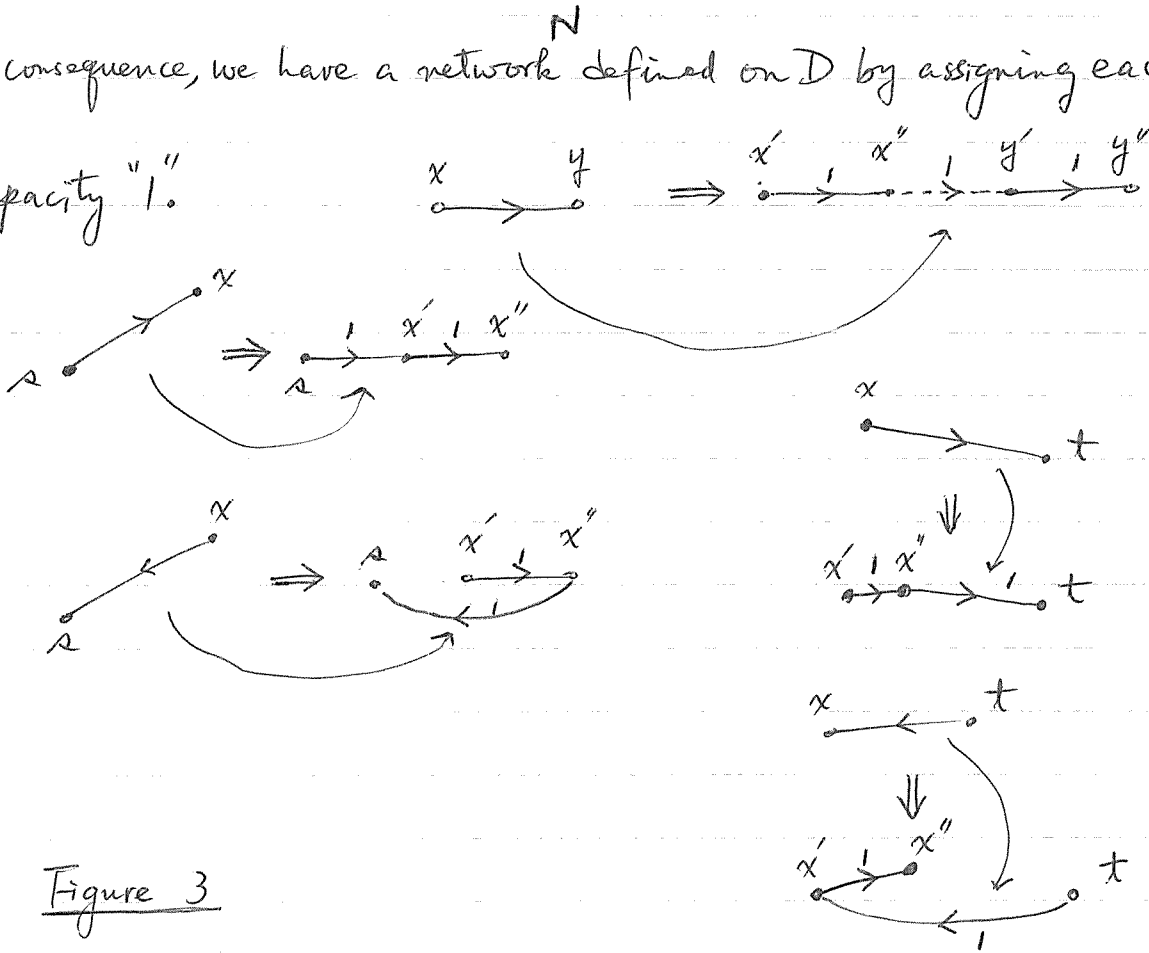 N
consequence, we have a network defined on D by assigning eac
pacity "1".
x y ⇒ x' 1 x'' 1 y' 1 y''
s x ⇒ s 1 x' 1 x''
x t
⇓
x' 1 x'' 1 t
s x ⇒ s x' 1 x'' 1
x t
⇓
x' 1 x'' t 1
Figure 3